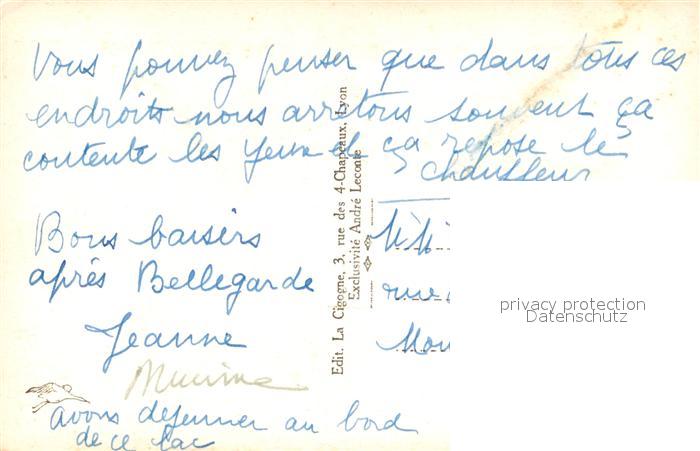 Vous pouvez penser que dans tous ces
endroits nous arretons souvent ça
contente les yeux et ça repose le
chauffeur
Bons baisers
après Bellegarde
Jeanne
avons dejeuner au bord
de ce lac
Edit. La Cigogne, 3, rue des 4-Chapeaux, Lyon
Exclusivité André Leconte
rue
privacy protection
Datenschutz